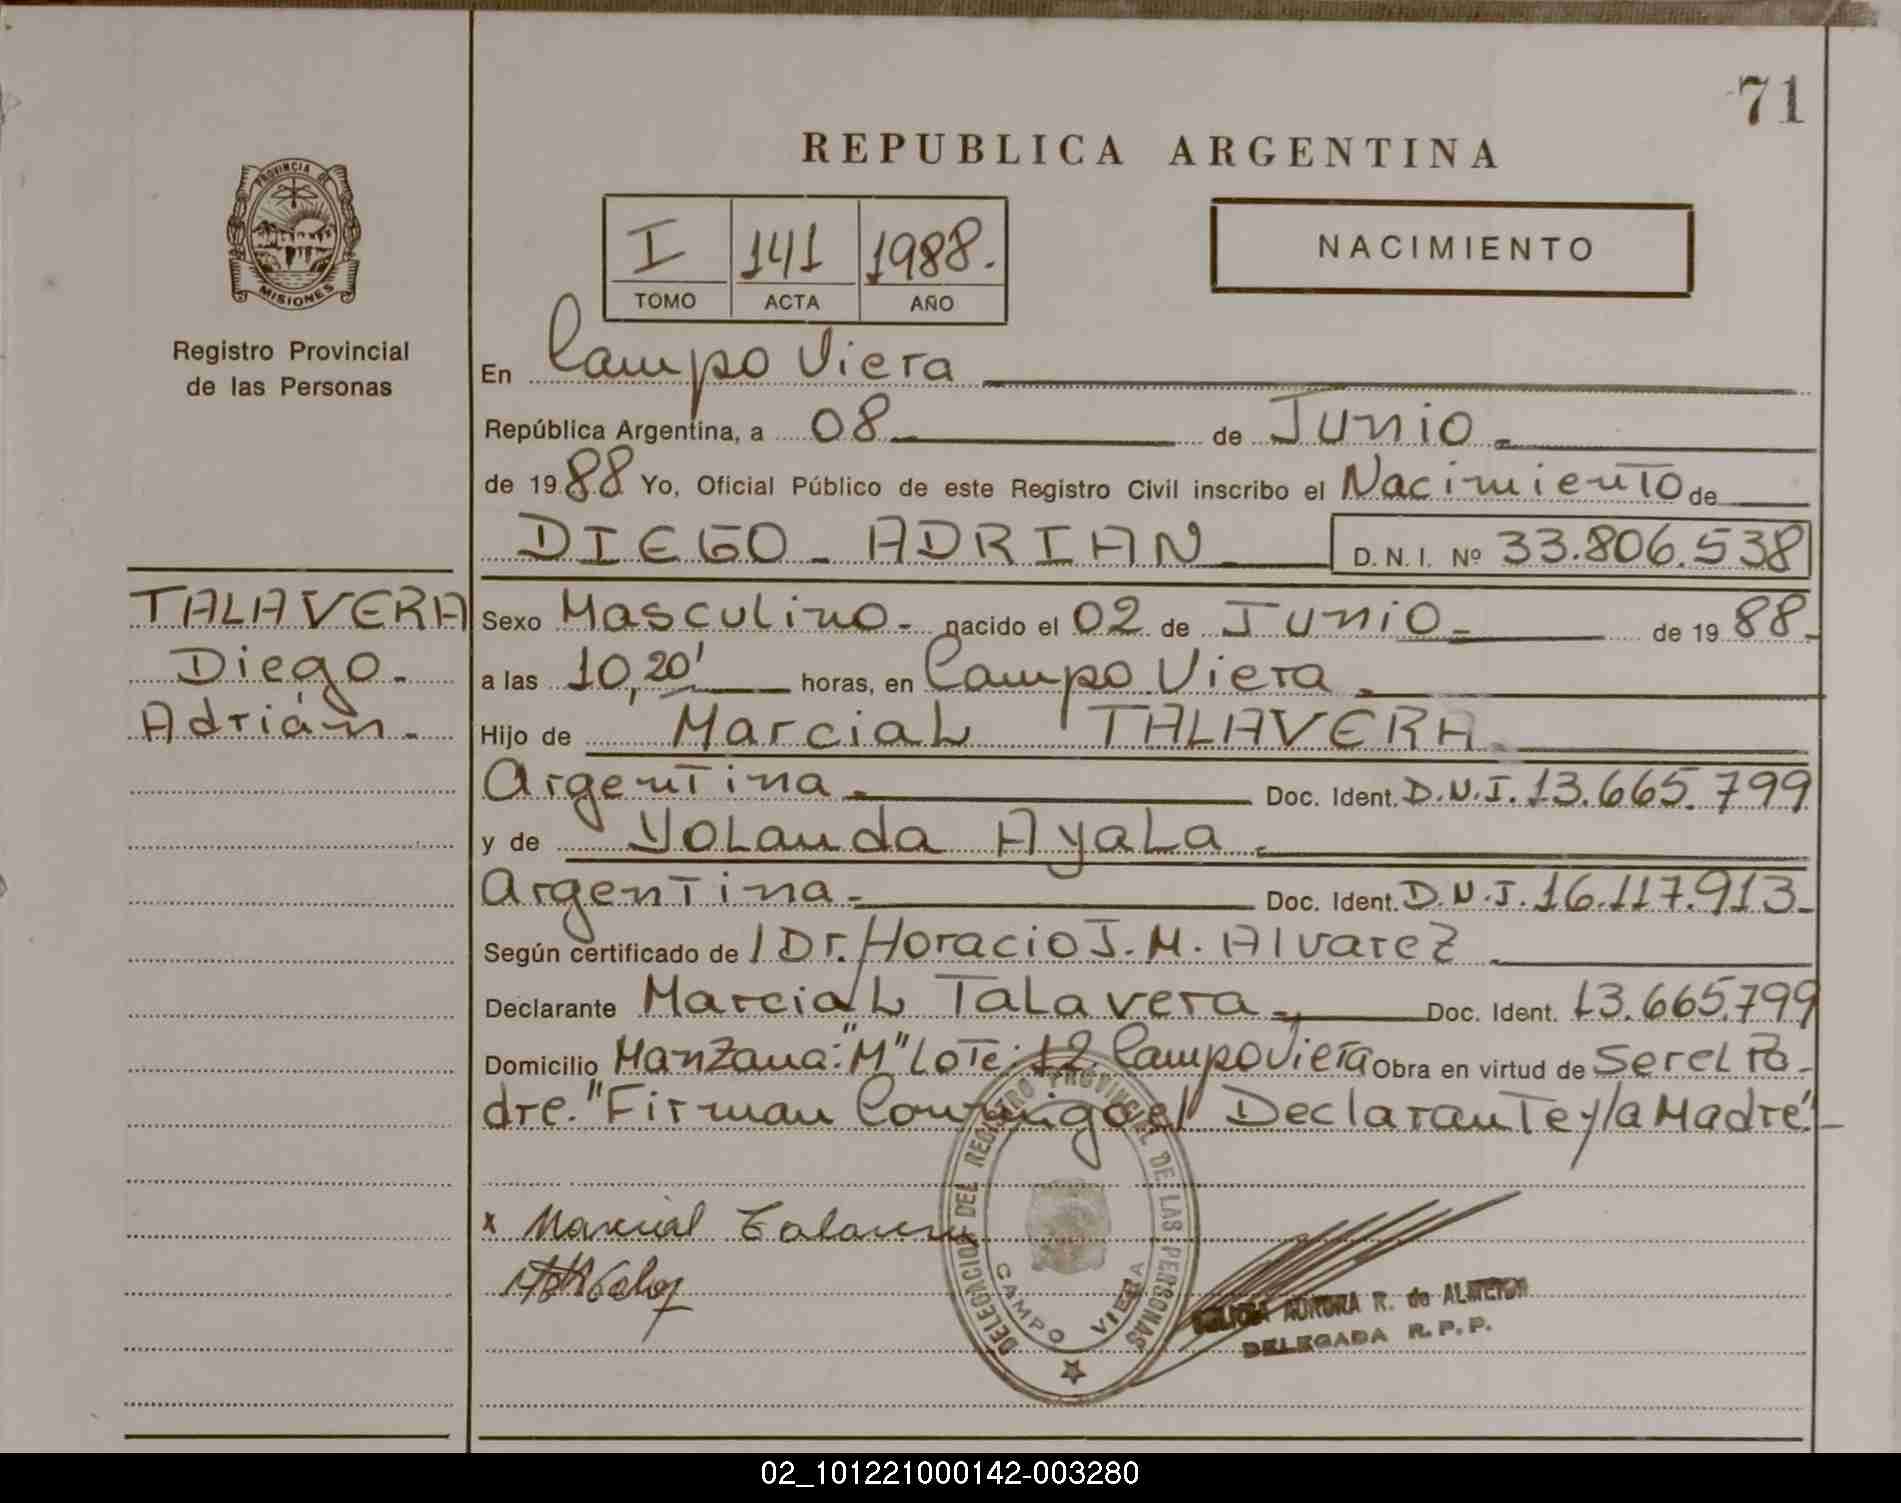 71
REPUBLICA ARGENTINA
PROVINCIA DE
MISIONES
Registro Provincial
de las Personas
I 141 1988.
TOMO ACTA AÑO
NACIMIENTO
En Campo Viera
República Argentina, a 08 de Junio.
de 1988 Yo, Oficial Público de este Registro Civil inscribo el Nacimiento de
DIEGO - ADRIAN D. N. I. Nº 33.806.538
TALAVERA
Diego.
Adrián.
Sexo Masculino - nacido el 02 de Junio - de 1988.
a las 10,20' horas, en Campo Viera.
Hijo de Marcial TALAVERA.
Argentina. Doc. Ident. D.N.I. 13.665.799
y de Yolanda Ayala.
Argentina - Doc. Ident. D.N.I. 16.117.913-
Según certificado de / Dr. Horacio J. M. Alvarez
Declarante Marcial Talavera Doc. Ident. 13.665.799
Domicilio Manzana: "M" Lote: 12 Campo Viera Obra en virtud de Ser el Pa-
dre. "Firman Conmigo el Declarante y la Madre"-
x Marcial Talavera
DELEGACION DEL REGISTRO PROVINCIAL DE LAS PERSONAS
CAMPO VIERA
AURORA R. de
DELEGADA R. P. P.
02_101221000142-003280